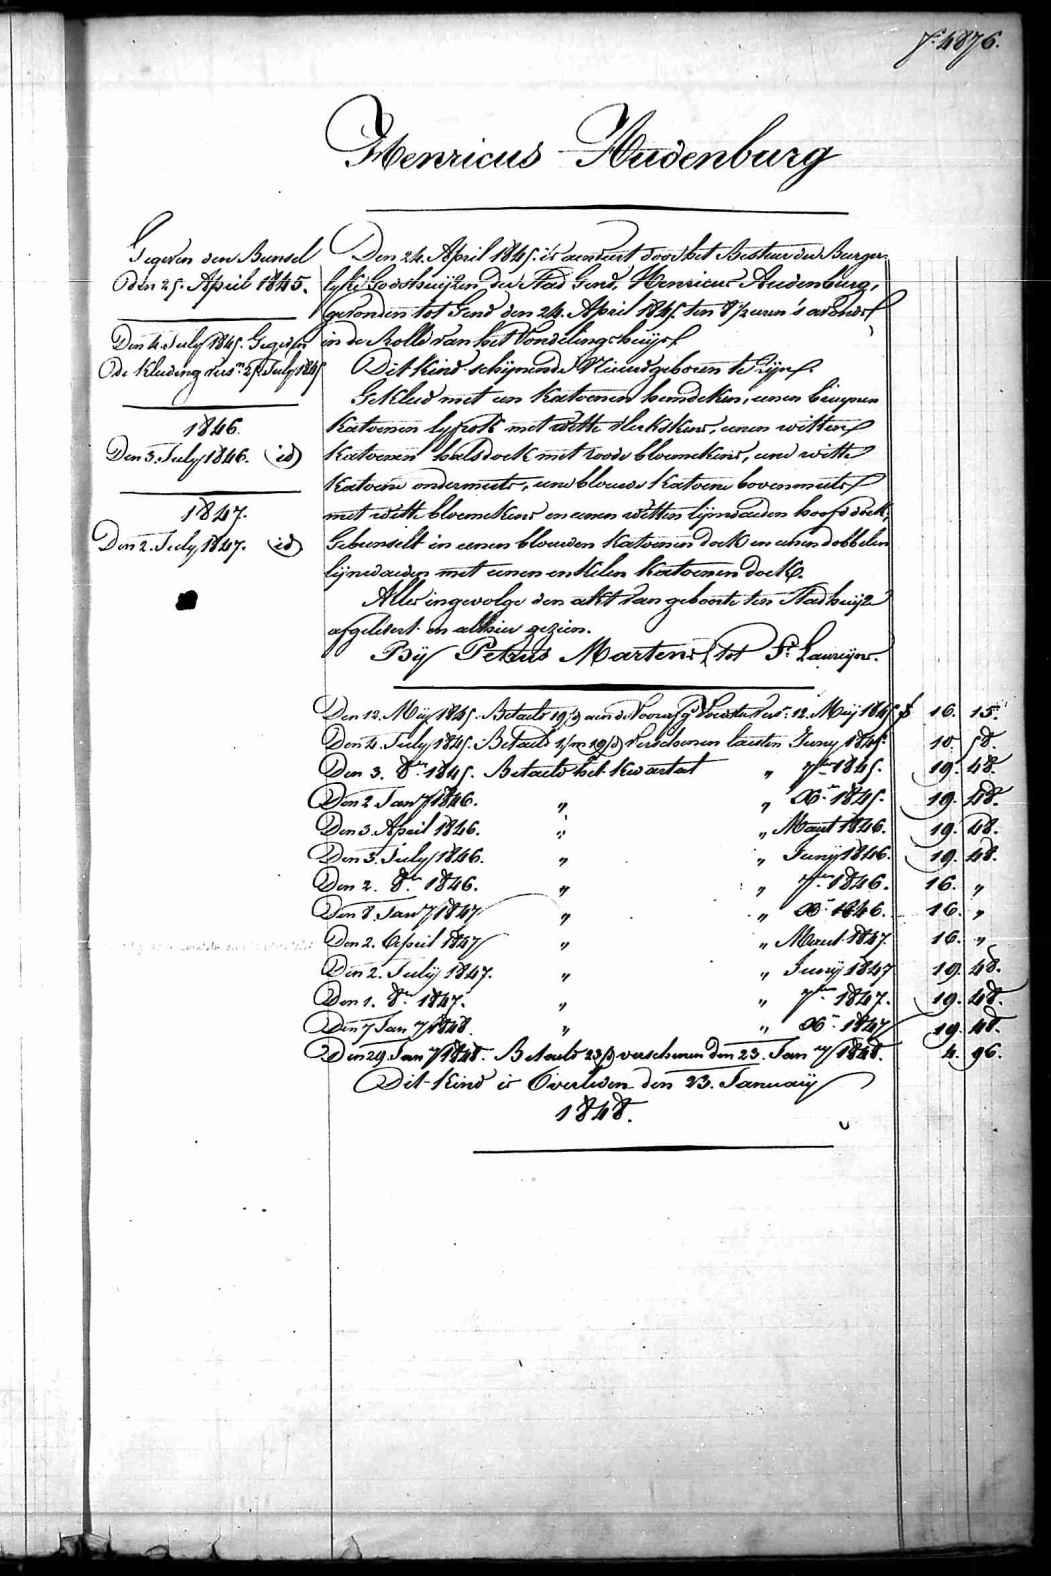 f.° 4876.
Henricus Audenburg
Gegeven den Bunsel
den 25. April 1845.
Den 4. July 1845. Gegeven
de Kleeding vers.n 25 July 1845
1846.
Den 3. July 1846. id
1847.
Den 2. July 1847. id
Den 24. April 1845. is aenveert door het Bestuur der Burger-
lyke Godshuijzen der Stad Gend, Henricus Audenburg,
gevonden tot Gend den 24. April 1845 ten 8 1/2 uren 's avonds
in de Rolle van het Vondelingshuijs
Dit Kind schijnende Nieuwgeboren te zijn.
Gekleed met een Katoenen hemdeken, eenen bruynen
Katoenen lyfrok met witte vlekskens, eenen witten
Katoenen halsdoek met roode bloemekens, eene witte
Katoene ondermuts, eene blouwe Katoene bovenmuts
met witte bloemekens en eenen witten lijnwaeden hoofddoek,
Gebunselt in eenen blouwen Katoenen doek en eenen dobbelen
lijnwaeden met eenen enkelen Katoenen doek.
Alles ingevolge den akt van geboorte ten Stadhuijze
afgelevert en alhier gezien.
Bij Petrus Martens, tot St. Laureijns.
Den 12. Meij 1845. Betaeld 19/d aen de Voorafg. Voedster vers. 12. Meij 1845 f 16. 15.
Den 4. July 1845. Betaeld 1/m 19/d verschenen laesten Juny 1845. 10. 58.
Den 3. 8.er 1845. Betaeld het Kwartael „ 7.ber 1845. 19. 48.
Den 2. Jany 1846. „ „ Xb.er 1845. 19. 48.
Den 3. April 1846. „ „ Maert 1846. 19. 48.
Den 3. July 1846. „ „ Junij 1846. 19. 48.
Den 2. 8.er 1846. „ „ 7.ber 1846. 16. „
Den 8. Jany 1847 „ „ Xb.er 1846. 16. „
Den 2. April 1847 „ „ Maert 1847. 16. „
Den 2. July 1847. „ „ Junij 1847 19. 48.
Den 1. 8.er 1847. „ „ 7.ber 1847. 19. 48.
Den 7 Jany 1848. „ „ Xb.er 1847 19. 48.
Den 29 Jany 1848. Betaeld 23/d verschenen den 23. Jany 1848. 4. 96.
Dit Kind is Overleden den 23. January
1848.